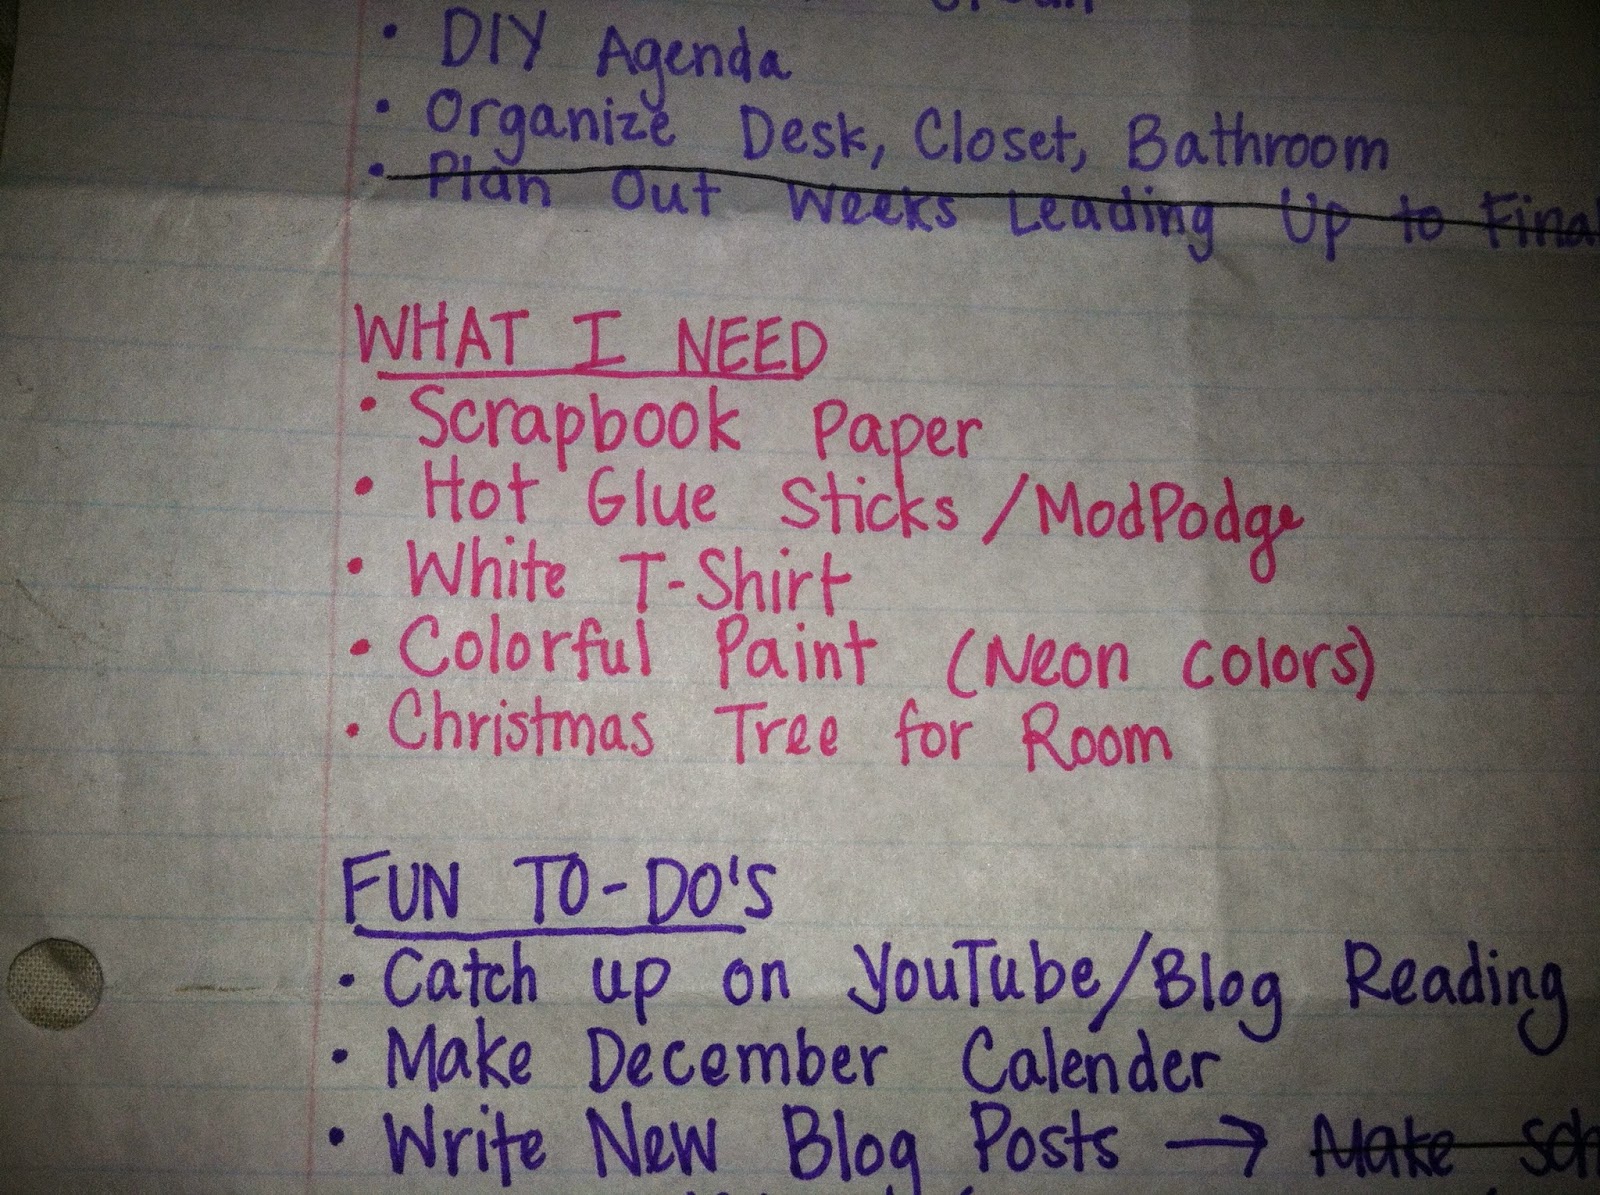 • DIY Agenda
• Organize Desk, Closet, Bathroom
• Plan Out Weeks Leading Up to Final
WHAT I NEED
• Scrapbook Paper
• Hot Glue Sticks / ModPodge
• White T-Shirt
• Colorful Paint (Neon colors)
• Christmas Tree for Room
FUN TO-DO'S
• Catch up on YouTube/Blog Reading
• Make December Calender
• Write New Blog Posts → Make sch